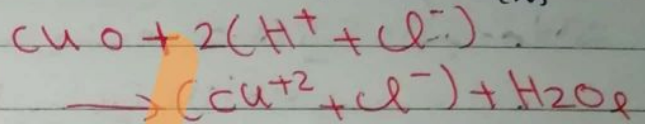 CuO + 2(H⁺ + Cl⁻)
⟶ (Cu⁺² + Cl⁻) + H2Oℓ